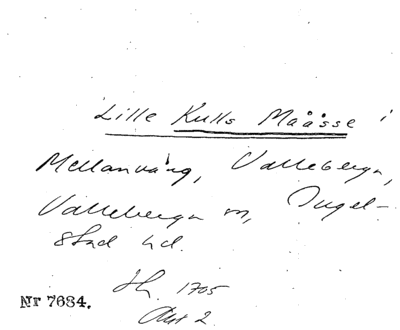 Lille Kulls Måässe i
Mellanvång, Valleberga,
Valleberga sn, Ingel-
stad hd.
Sk. 1705
Akt 2
Nr 7684.